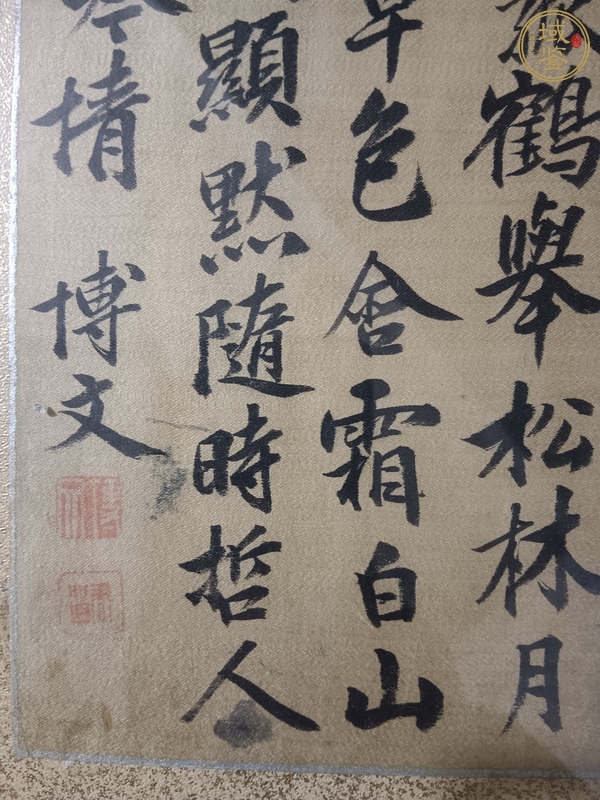 鶴舉松林月
草色含霜白山
顯默隨時哲人
情 博文
域鉴